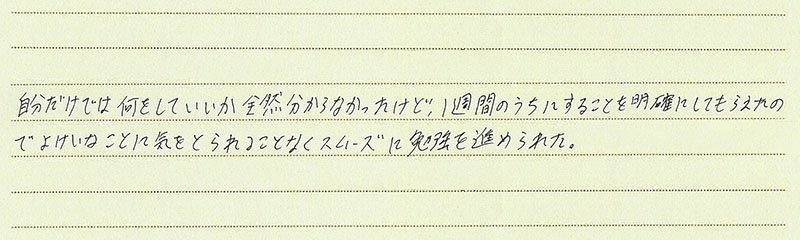 自分だけでは何をしていいか全然分からなかったけど、1週間のうちにすることを明確にしてもらえたの
でよけいなことに気をとられることなくスムーズに勉強を進められた。